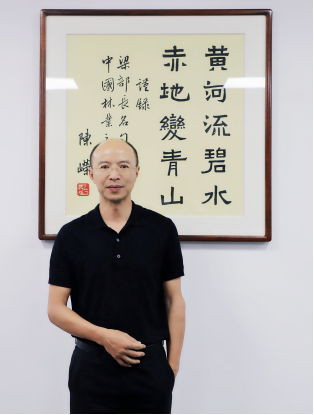 黄河流碧水
赤地變青山
謹録
梁部長名
中國林業
陳嶸